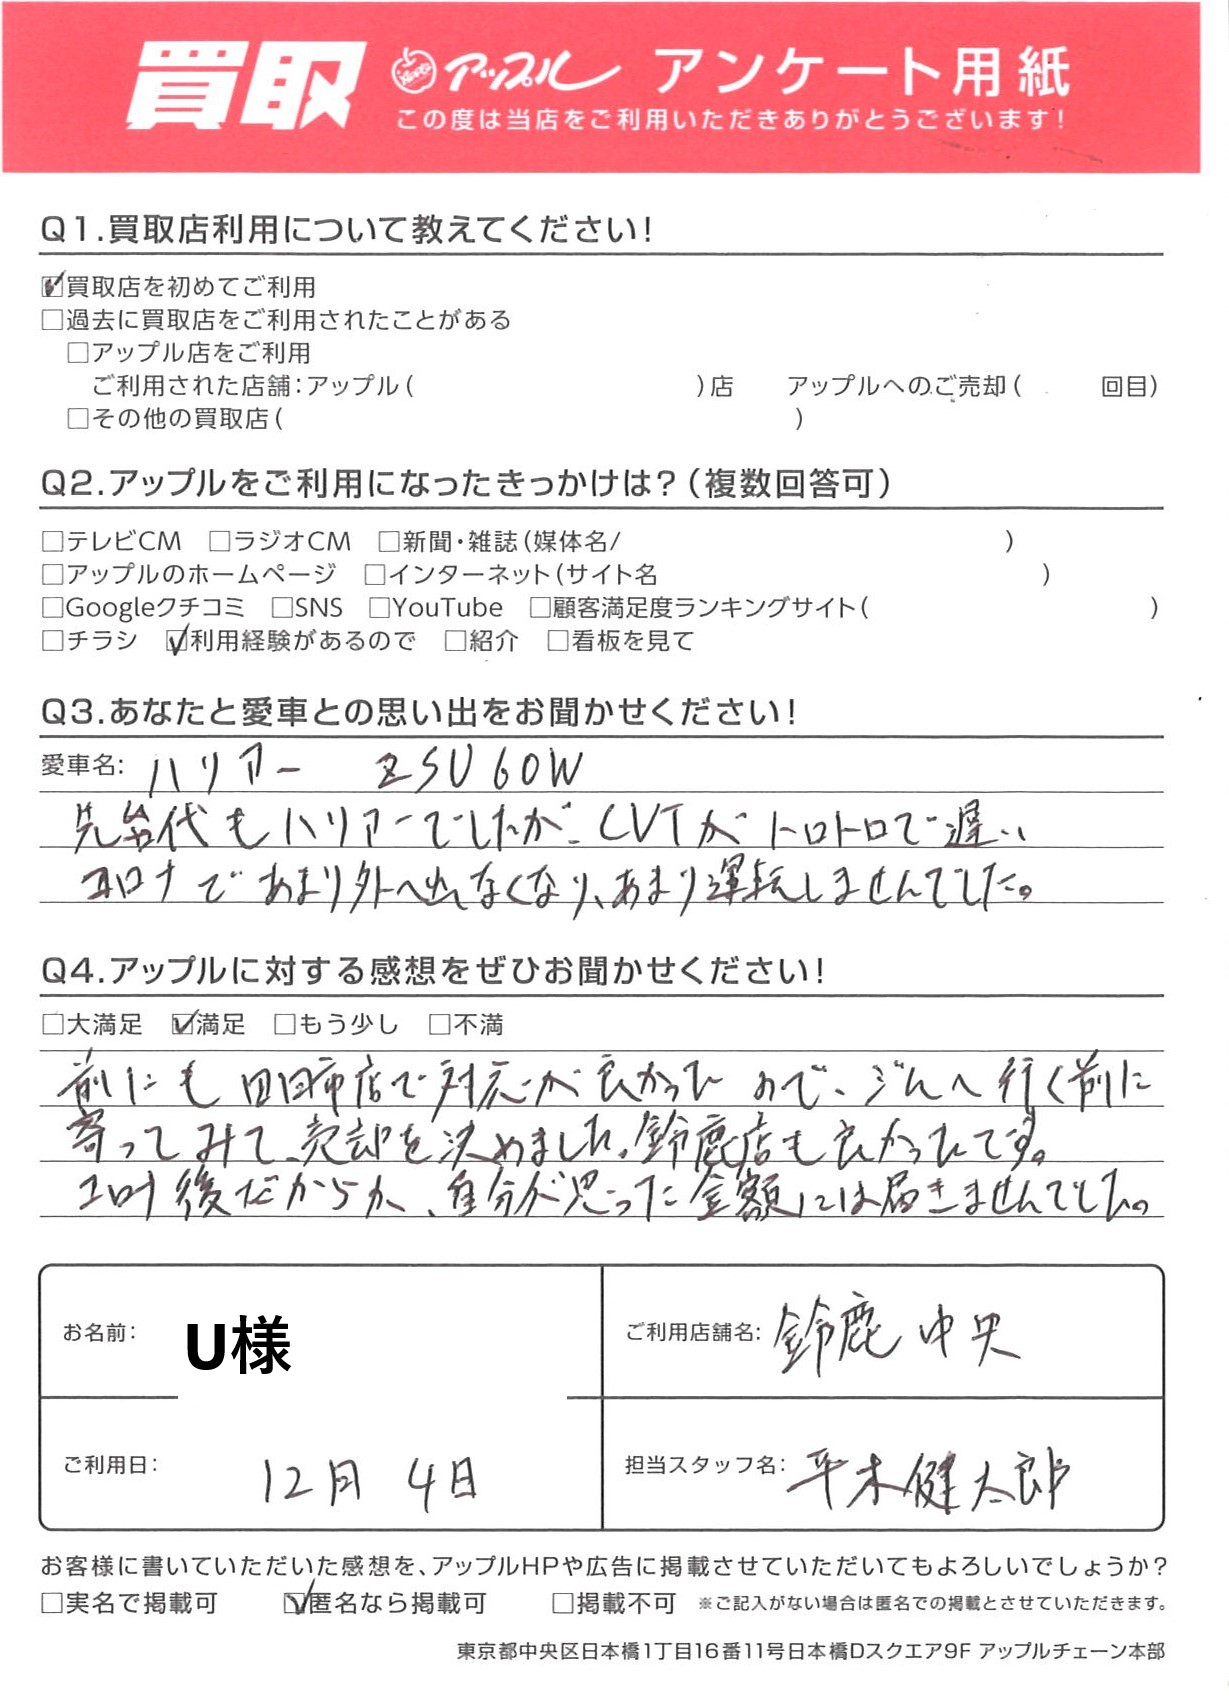 買取 アップル アンケート用紙
この度は当店をご利用いただきありがとうございます!
Q1.買取店利用について教えてください!
☑買取店を初めてご利用
□過去に買取店をご利用されたことがある
□アップル店をご利用
ご利用された店舗:アップル( )店 アップルへのご売却( 回目)
□その他の買取店( )
Q2.アップルをご利用になったきっかけは?(複数回答可)
□テレビCM □ラジオCM □新聞・雑誌(媒体名/ )
□アップルのホームページ □インターネット(サイト名 )
□Googleクチコミ □SNS □YouTube □顧客満足度ランキングサイト( )
□チラシ ☑利用経験があるので □紹介 □看板を見て
Q3.あなたと愛車との思い出をお聞かせください!
愛車名: ハリアー ZSU60W
先代もハリアーでしたが、CVTがトロトロで遅い
コロナであまり外へ出なくなり、あまり運転しませんでした。
Q4.アップルに対する感想をぜひお聞かせください!
□大満足 ☑満足 □もう少し □不満
前にも四日市店で対応が良かったので、ジムへ行く前に
寄ってみて、売却を決めました。鈴鹿店も良かったです。
コロナ後だからか、自分が思った金額には届きませんでした。
お名前: U様
ご利用店舗名: 鈴鹿中央
ご利用日: 12月 4日
担当スタッフ名: 平木健太郎
お客様に書いていただいた感想を、アップルHPや広告に掲載させていただいてもよろしいでしょうか?
□実名で掲載可 ☑匿名なら掲載可 □掲載不可 ※ご記入がない場合は匿名での掲載とさせていただきます。
東京都中央区日本橋1丁目16番11号日本橋Dスクエア9F アップルチェーン本部